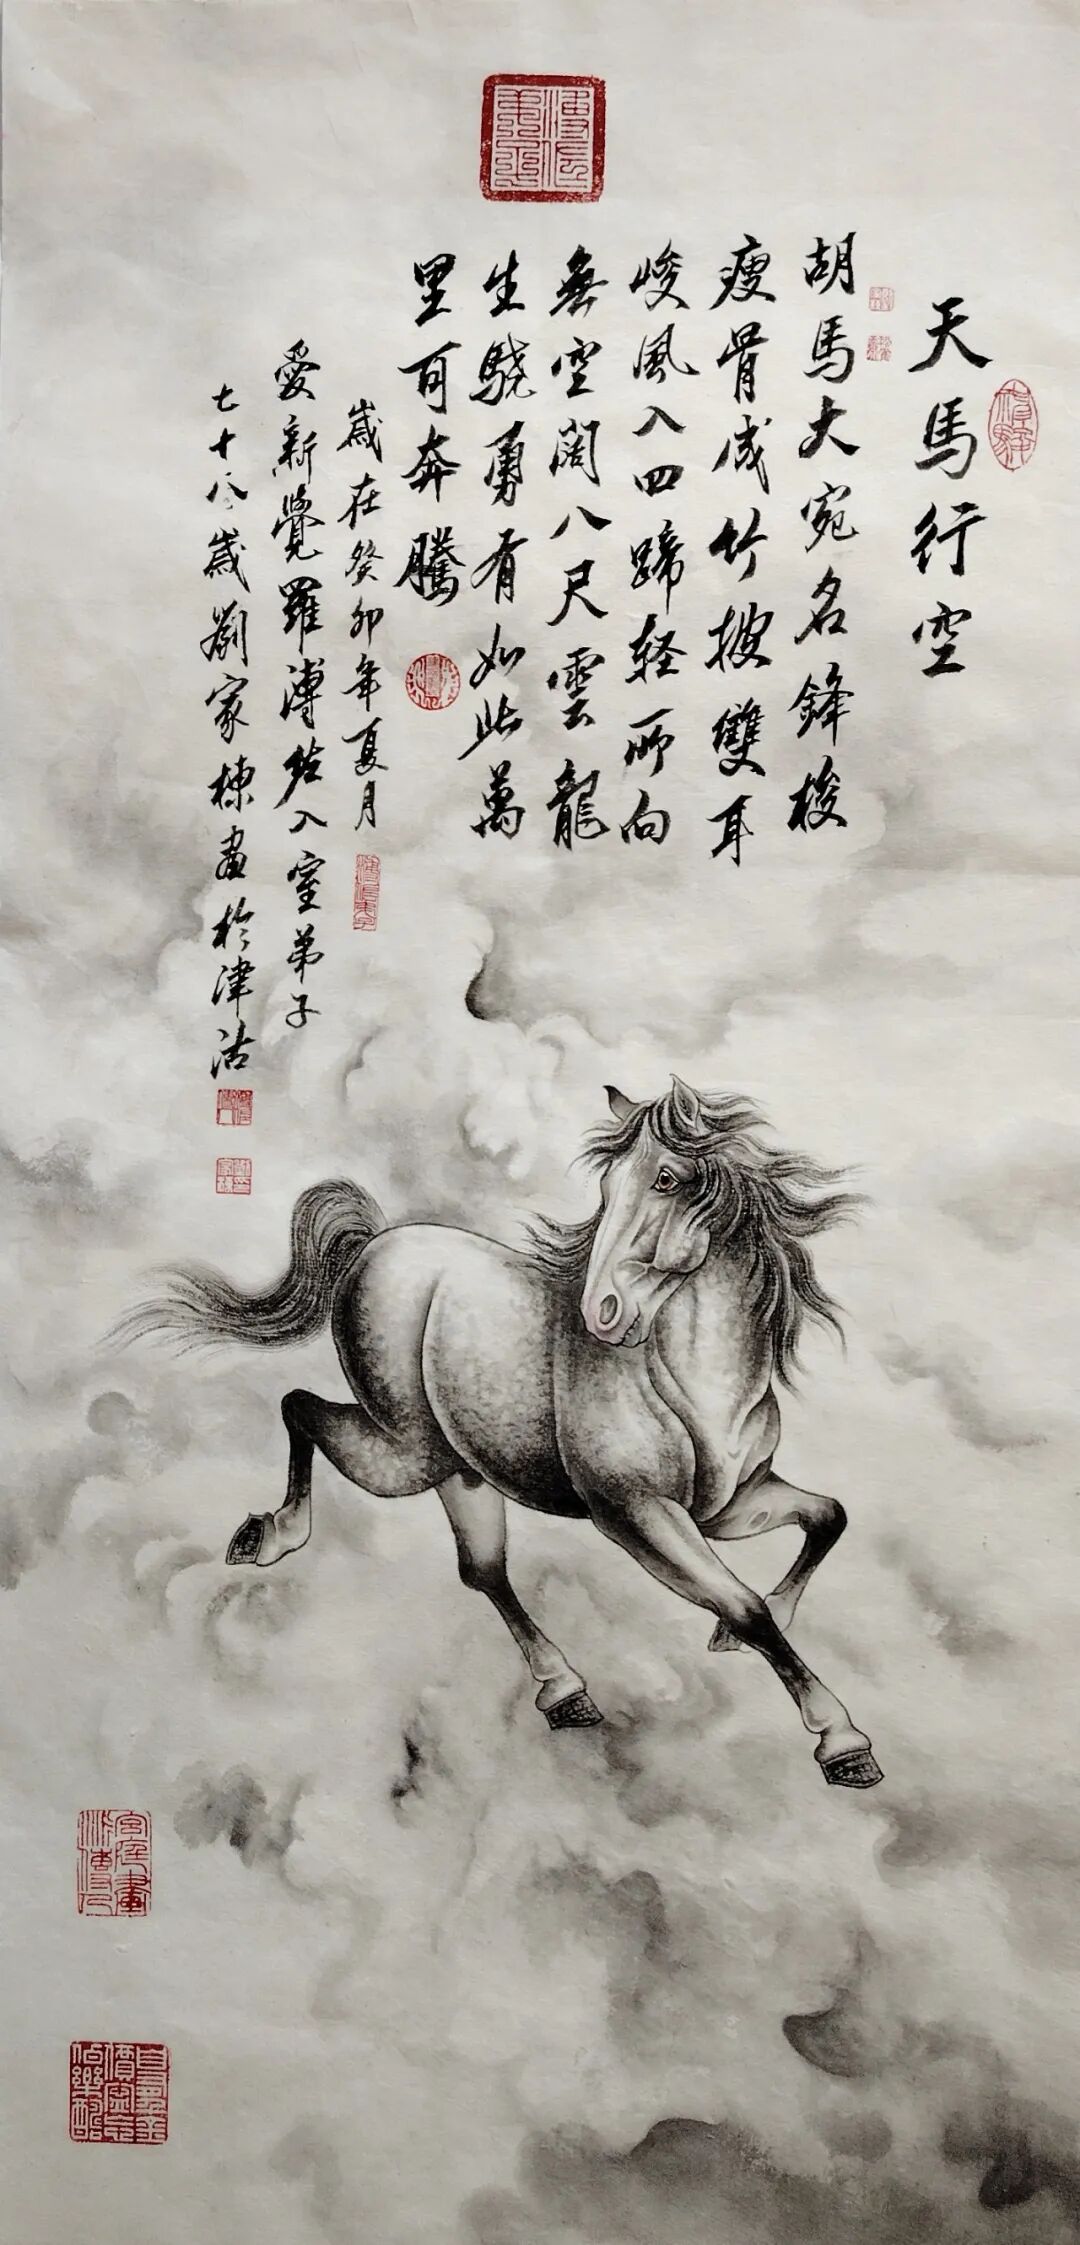 天馬行空
胡馬大宛名鋒棱
瘦骨成竹披雙耳
峻風入四蹄輕所向
無空闊八尺雲龍
生驍勇有如此萬
里可奔騰
歲在癸卯年夏月
愛新覺羅溥佐入室弟子
七十八歲劉家棟畫於津沽